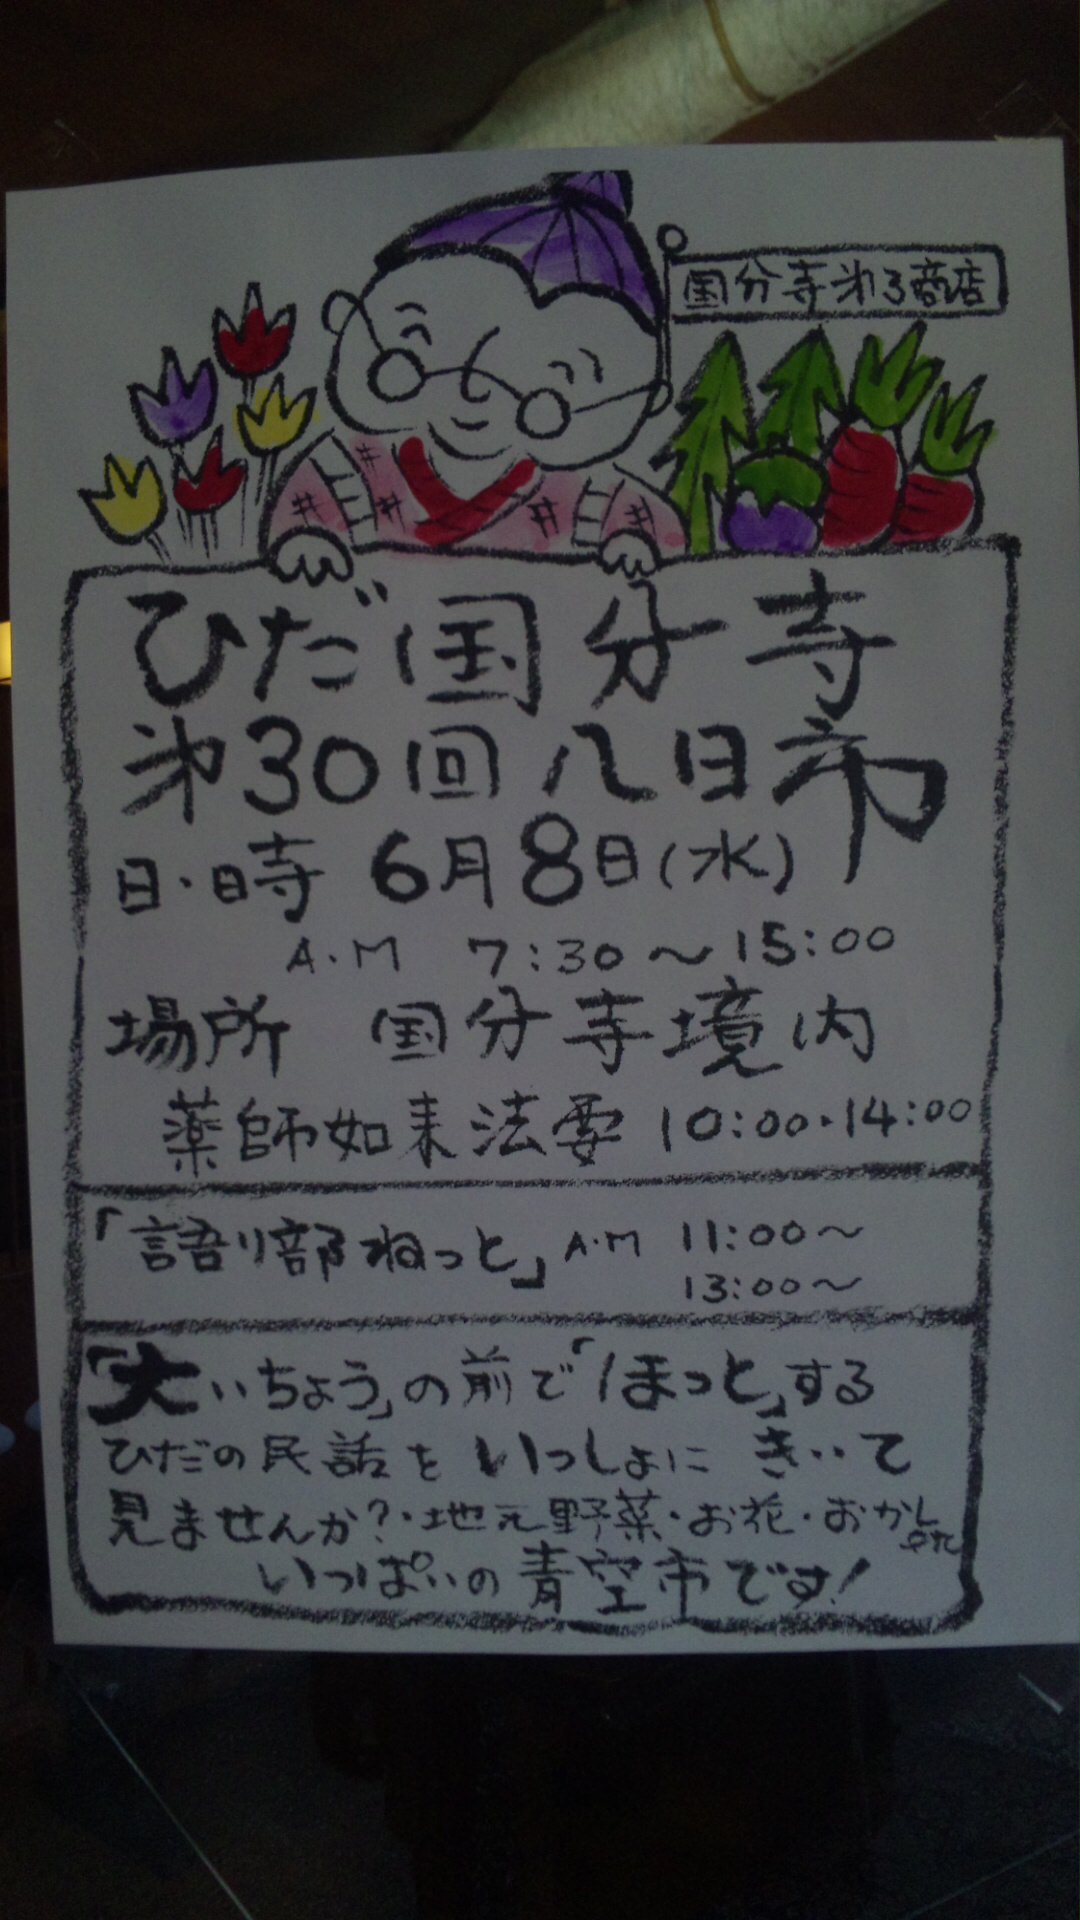 国分寺第3商店
ひだ国分寺
第30回八日市
日・時 6月8日(水)
A・M 7:30〜15:00
場所 国分寺境内
薬師如来法要 10:00・14:00
「語り部ねっと」A・M 11:00〜
13:00〜
「大いちょう」の前で「ほっと」する
ひだの民話をいっしょにきいて
見ませんか?・地元野菜・お花・おかし
いっぱいの青空市です!